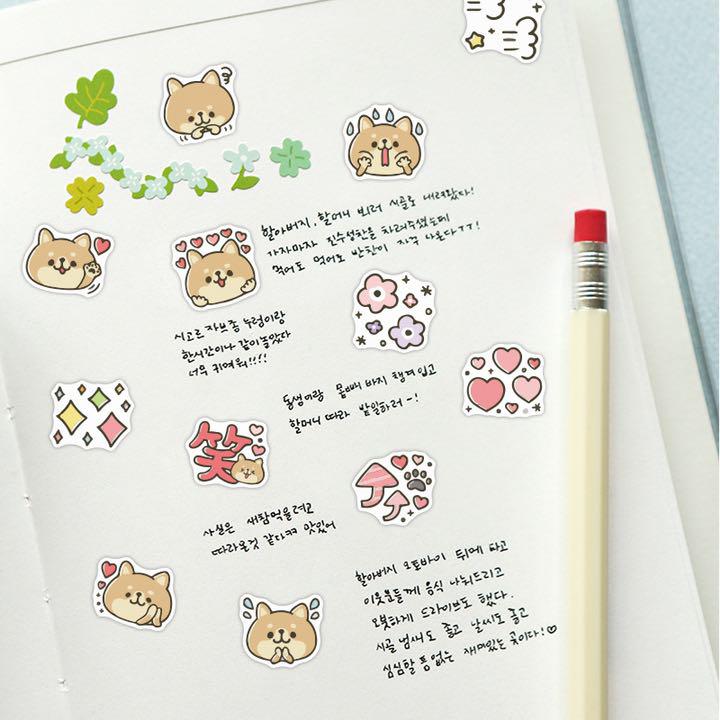 할아버지, 할머니 뵈러 시골로 내려왔다!
가자마자 진수성찬을 차려주셨는데
먹어도 먹어도 반찬이 자꾸 나온다ㅜㅜ!
시고르자브종 누렁이랑
한시간이나 같이놀았다
너무 귀여워!!!!
동생이랑 몸빼 바지 챙겨입고
할머니 따라 밭일하러~!
笑
사실은 새참먹을려고
따라온것 같다ㅋㅋ 맛있어
할아버지 오토바이 뒤에 타고
이웃분들께 음식 나눠드리고
오붓하게 드라이브도 했다.
시골 냄새도 좋고 날씨도 좋고
심심할 틈 없는 재미있는 곳이다!♡